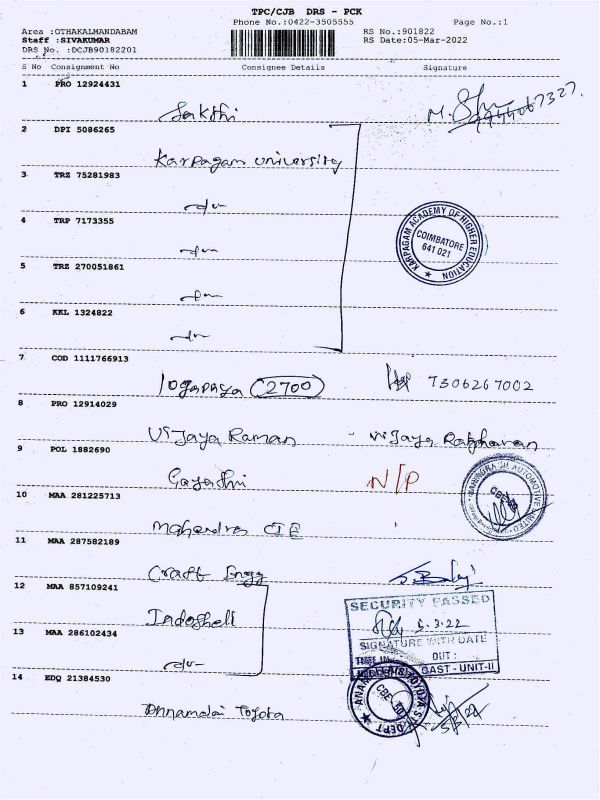 TPC/CJB DRS - PCK
Phone No.:0422-3505555 Page No.:1
Area :OTHAKALMANDABAM RS No.:901822
Staff :SIVAKUMAR RS Date:05-Mar-2022
DRS No. :DCJB90182201
S No Consignment No Consignee Details Signature
1 PRO 12924431
Sakthi
2 DPI 5086265
Karpagam University
3 TRZ 75281983
4 TRP 7173355
KARPAGAM ACADEMY OF HIGHER EDUCATION
COIMBATORE
641 021
5 TRZ 270051861
6 KKL 1324822
7 COD 1111766913
2700 7306267002
8 PRO 12914029
Vijaya Raman Vijaya Raghavan
9 POL 1882690
Gayathri N/P
10 MAA 281225713
Mahendra CBE
11 MAA 287582189
Craft Engg
12 MAA 857109241
Indoshell
SECURITY PASSED
5.3.22
SIGNATURE WITH DATE
OUT :
CAST - UNIT-II
13 MAA 286102434
14 EDQ 21384530
Annamalai Toyota